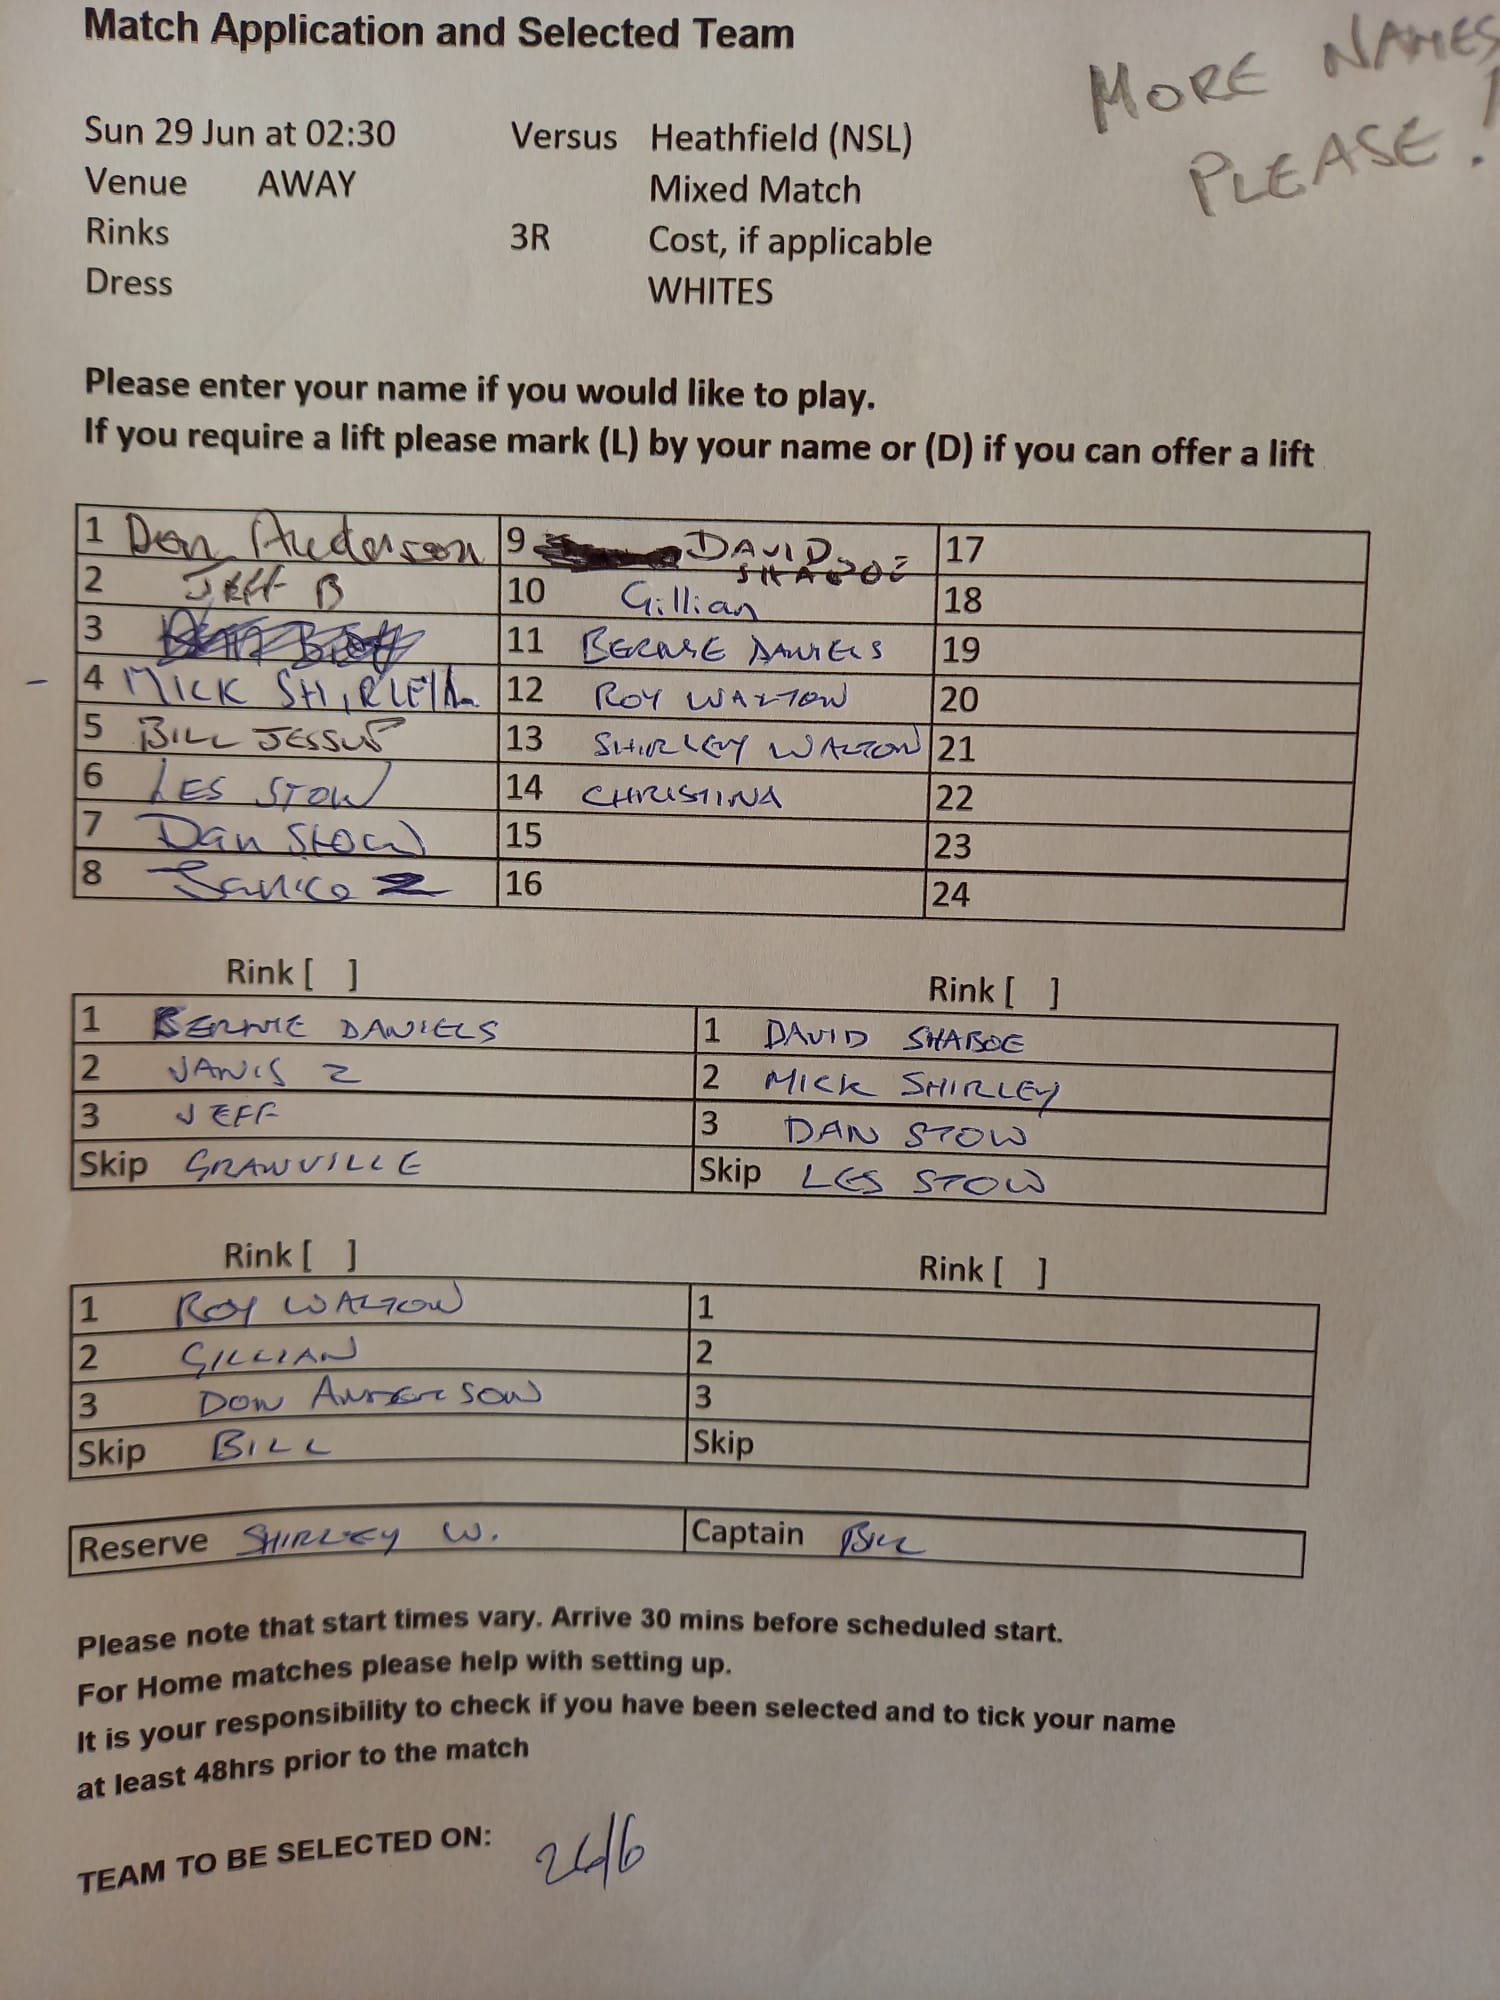 Match Application and Selected Team
MORE NAMES
PLEASE!
Sun 29 Jun at 02:30 Versus Heathfield (NSL)
Venue AWAY Mixed Match
Rinks 3R Cost, if applicable
Dress WHITES
Please enter your name if you would like to play.
If you require a lift please mark (L) by your name or (D) if you can offer a lift
1 Don Anderson 9 DAVID SHABOE 17
2 JEFF B 10 Gillian 18
3 11 BERNIE DANIELS 19
- 4 MICK SHIRLEY 12 ROY WALTON 20
5 BILL JESSUP 13 SHIRLEY WALTON 21
6 LES STOW 14 CHRISTINA 22
7 Dan Stow 15 23
8 Janice Z 16 24
Rink [ ] Rink [ ]
1 BERNIE DANIELS 1 DAVID SHABOE
2 JANIS Z 2 MICK SHIRLEY
3 JEFF 3 DAN STOW
Skip GRANVILLE Skip LES STOW
Rink [ ] Rink [ ]
1 ROY WALTON 1
2 GILLIAN 2
3 DON ANDERSON 3
Skip BILL Skip
Reserve SHIRLEY W. Captain BILL
Please note that start times vary. Arrive 30 mins before scheduled start.
For Home matches please help with setting up.
It is your responsibility to check if you have been selected and to tick your name
at least 48hrs prior to the match
TEAM TO BE SELECTED ON: 26/6